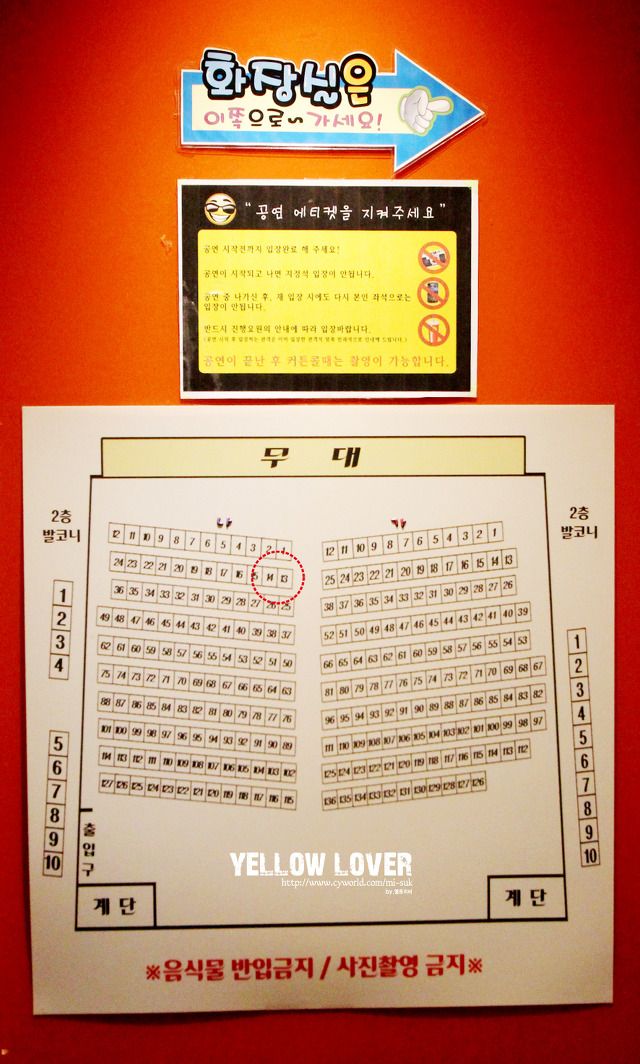 화장실은
이쪽으로~ 가세요!
“공연 에티켓을 지켜주세요”
공연 시작전까지 입장완료 해 주세요!
공연이 시작되고 나면 지정석 입장이 안됩니다.
공연 중 나가신 후, 재 입장 시에도 다시 본인 좌석으로는
입장이 안됩니다.
반드시 진행요원의 안내에 따라 입장바랍니다.
공연이 끝난 후 커튼콜때는 촬영이 가능합니다.
무 대
2층
발코니
1
2
3
4
5
6
7
8
9
10
나
12 11 10 9 8 7 6 5 4 3 2 1
24 23 22 21 20 19 18 17 16 15 14 13
36 35 34 33 32 31 30 29 28 27 26 25
49 48 47 46 45 44 43 42 41 40 39 38 37
62 61 60 59 58 57 56 55 54 53 52 51 50
75 74 73 72 71 70 69 68 67 66 65 64 63
88 87 86 85 84 83 82 81 80 79 78 77 76
101 100 99 98 97 96 95 94 93 92 91 90 89
114 113 112 111 110 109 108 107 106 105 104 103 102
127 126 125 124 123 122 121 120 119 118 117 116 115
가
12 11 10 9 8 7 6 5 4 3 2 1
25 24 23 22 21 20 19 18 17 16 15 14 13
38 37 36 35 34 33 32 31 30 29 28 27 26
52 51 50 49 48 47 46 45 44 43 42 41 40 39
66 65 64 63 62 61 60 59 58 57 56 55 54 53
81 80 79 78 77 76 75 74 73 72 71 70 69 68 67
96 95 94 93 92 91 90 89 88 87 86 85 84 83 82
111 110 109 108 107 106 105 104 103 102 101 100 99 98 97
125 124 123 122 121 120 119 118 117 116 115 114 113 112
136 135 134 133 132 131 130 129 128 127 126
2층
발코니
1
2
3
4
5
6
7
8
9
10
출
입
구
계 단
계 단
YELLOW LOVER
http://www.cyworld.com/mi-suk
※음식물 반입금지 / 사진촬영 금지※